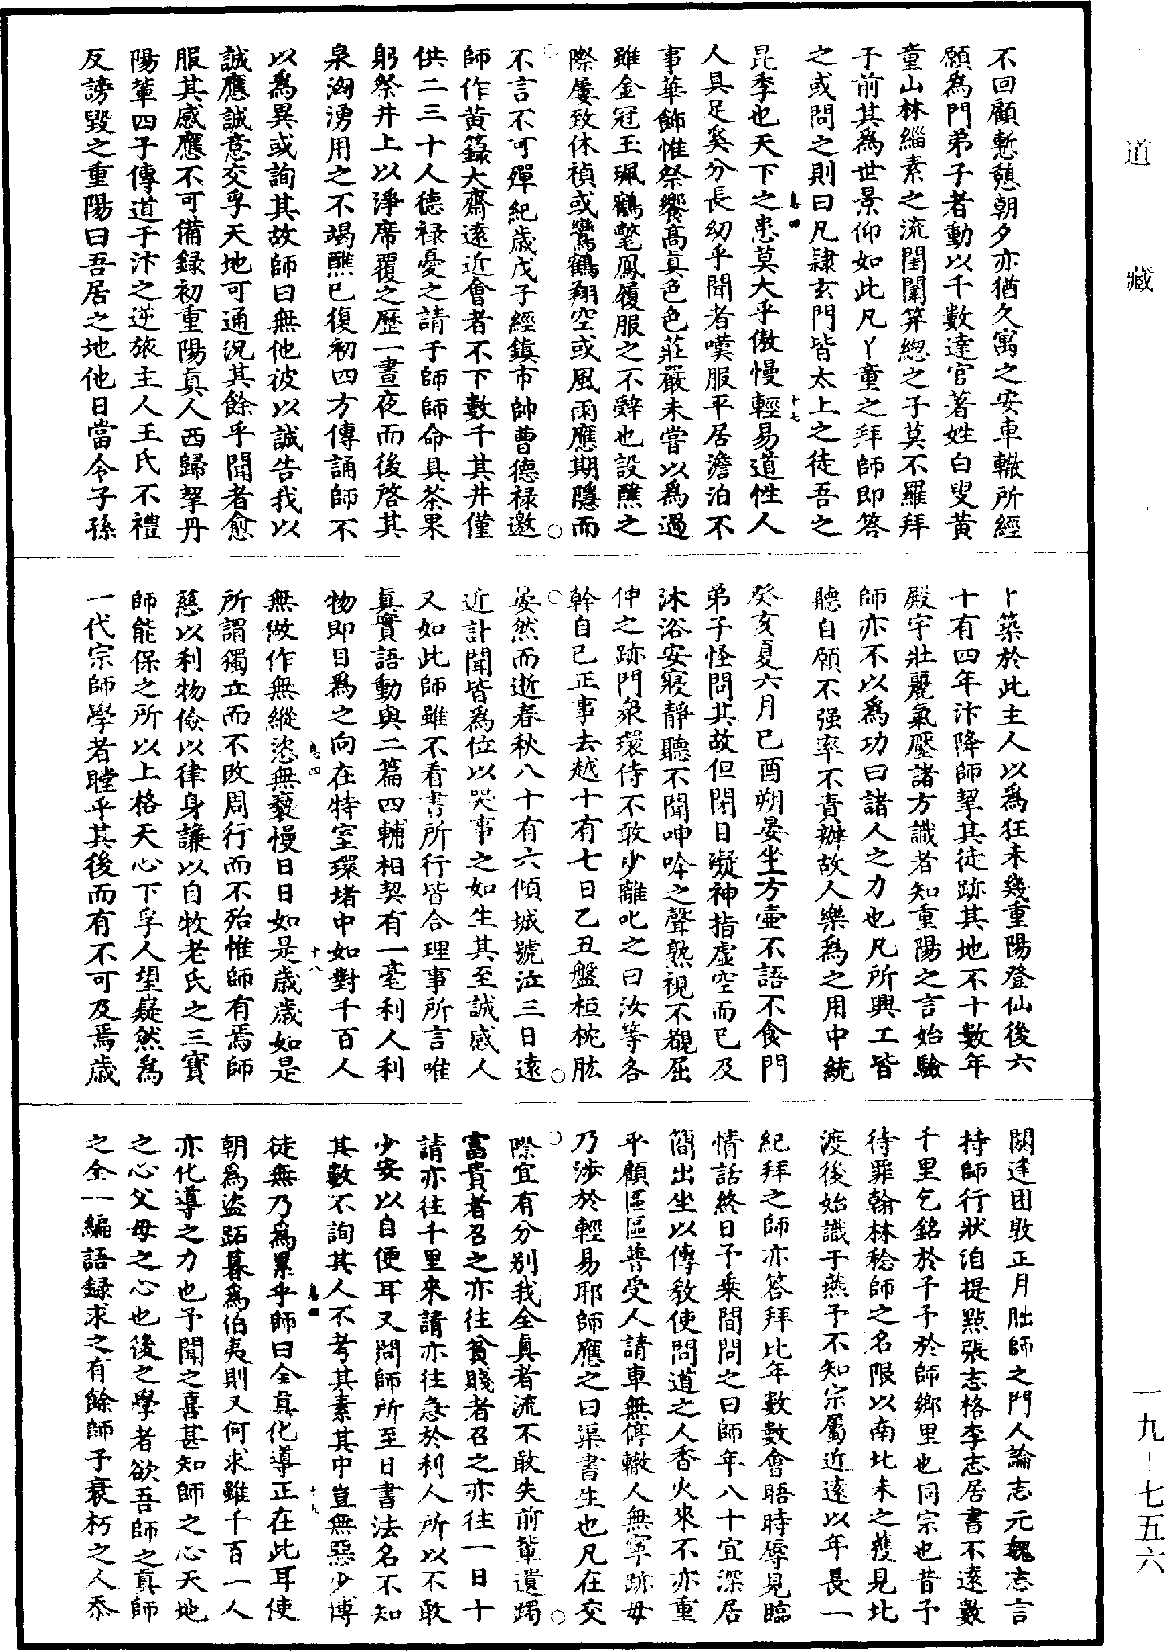 道藏
不回顧慙憩朝夕亦猶久寓之安車轍所經
願為門弟子者動以千數達官著姓白叟黃
童山林緇素之流閨闈笄總之子莫不羅拜
于前其為世景仰如此凡丫童之拜師即答
之或問之則曰凡隸玄門皆太上之徒吾之
昆季也天下之患莫大乎傲慢輕易道性人
人具足奚分長幼乎聞者嘆服平居澹泊不
事華飾惟祭饗高真色色莊嚴未嘗以為過
雖金冠玉珮鶴氅鳳履服之不辭也設醮之
際屢致休禎或鸞鶴翔空或風雨應期隱而
不言不可殫紀歲戊子經鎮市帥曹德祿邀
師作黃籙大齋遠近會者不下數千其井僅
供二三十人德祿憂之請于師師命具茶果
躬祭井上以淨席覆之歷一晝夜而後啓其
泉洶湧用之不竭醮已復初四方傳誦師不
以為異或詢其故師曰無他彼以誠告我以
誠應誠意交孚天地可通況其餘乎聞者愈
服其感應不可備錄初重陽真人西歸挈丹
陽輩四子傳道于汴之逆旅主人王氏不禮
反謗毀之重陽曰吾居之地他日當令子孫
卜築於此主人以為狂未幾重陽登仙後六
十有四年汴降師挈其徒跡其地不十數年
殿宇壯麗氣壓諸方識者知重陽之言始驗
師亦不以為功曰諸人之力也凡所興工皆
聽自願不强率不責辦故人樂為之用中統
癸亥夏六月己酉朔晏坐方壺不語不食門
弟子怪問其故但閉目凝神指虛空而已及
沐浴安寢靜聽不聞呻吟之聲熟視不覩屈
伸之跡門衆環侍不敢少離叱之曰汝等各
幹自己正事去越十有七日乙丑盤桓枕肱
晏然而逝春秋八十有六傾城號泣三日遠
近計聞皆為位以哭事之如生其至誠感人
又如此師雖不看書所行皆合理事所言唯
真實語動與二篇四輔相契有一毫利人利
物即日為之向在特室環堵中如對千百人
無做作無縱恣無褻慢日日如是歲歲如是
所謂獨立而不改周行而不殆惟師有焉師
慈以利物儉以律身謙以自牧老氏之三寶
師能保之所以上格天心下孚人望嶷然為
一代宗師學者瞠乎其後而有不可及焉歲
閼逢困敦正月朏師之門人論志元魏志言
持師行狀洎提點張志格李志居書不遠數
千里乞銘於予予於師鄉里也同宗也昔予
待罪翰林稔師之名限以南北未之獲見北
渡後始識于燕予不知宗屬近遠以年長一
紀拜之師亦答拜比年數數會晤時辱見臨
情話終日予乘間問之曰師年八十宜深居
簡出坐以傳教使問道之人香火來不亦重
乎顧區區普受人請車無停轍人無寧跡毋
乃涉於輕易耶師應之曰渠書生也凡在交
際宜有分別我全真者流不敢失前輩遺躅
富貴者召之亦往貧賤者召之亦往一日十
請亦往千里來請亦往急於利人所以不敢
少安以自便耳又問師所至日書法名不知
其數不詢其人不考其素其中豈無惡少博
徒無乃為累乎師曰全真化導正在此耳使
朝為盜跖暮為伯夷則又何求雖千百一人
亦化導之力也予聞之喜甚知師之心天地
之心父母之心也後之學者欲吾師之真師
之全一編語錄求之有餘師予衰朽之人忝
十七
十八
十九
一九－七五六